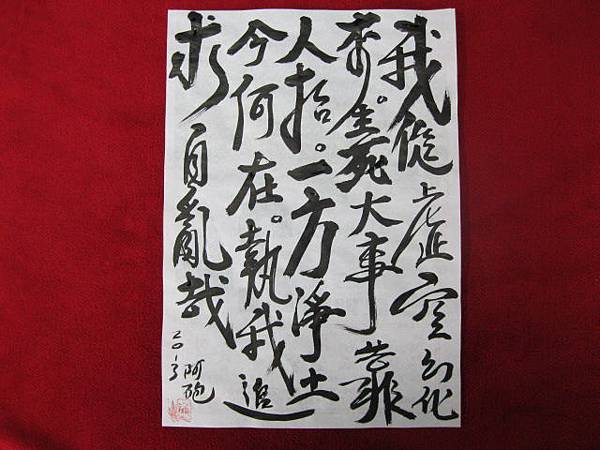 我從虛空幻化
來。生死大事靠
人抬。一方淨土
今何在。執我追
求自亂哉
阿砲